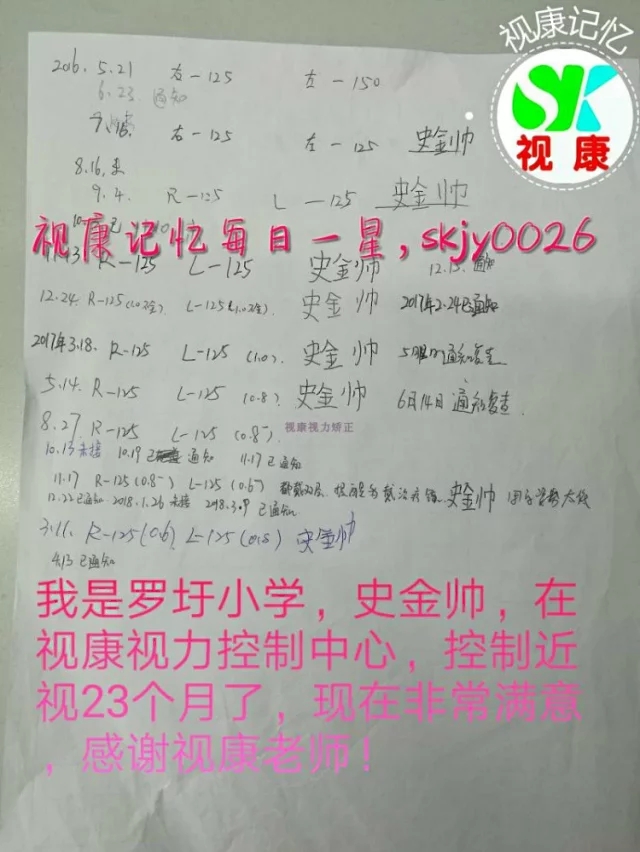 视康记忆
SK
视康
2016.5.21 右-125 左-150
6.23.通知
右-125 左-125 史金帅
8.16.
9.4. R-125 L-125 史金帅
视康记忆每日一星,skjy0026
R-125 L-125 史金帅 12.15.
12.24. R-125 L-125 史金帅 2017年2.24已通知
2017年3.18. R-125 L-125 (1.0). 史金帅 通知复查
5.14. R-125 L-125 (0.8) 史金帅 6月14日 通知复查.
8.27 R-125 L-125 (0.8-)
视康视力矫正
10.13未接 10.19已通知 11.17已通知
11.17 R-125(0.8-) L-125(0.6-) 史金帅
12.22已通知 2018.1.26未接 2018.3.9已通知
3.11. R-125(0.6) L-125(0.8) 史金帅
4.13已通知
我是罗圩小学，史金帅，在
视康视力控制中心，控制近
视23个月了，现在非常满意
，感谢视康老师！